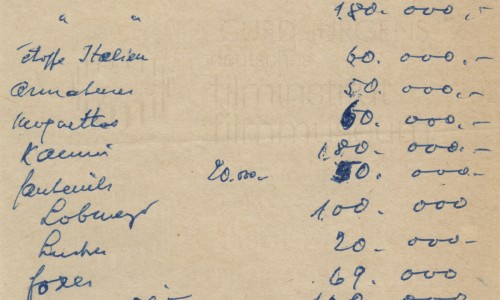 " " 180. 000,-
étoffe Italien 60. 000.-
50. 000.-
moquettes 60. 000.-
Kamin 180. 000.-
fauteuils 20.000.- 50. 000.-
Lobmeyr 100. 000
Luster 20. 000-
69. 000